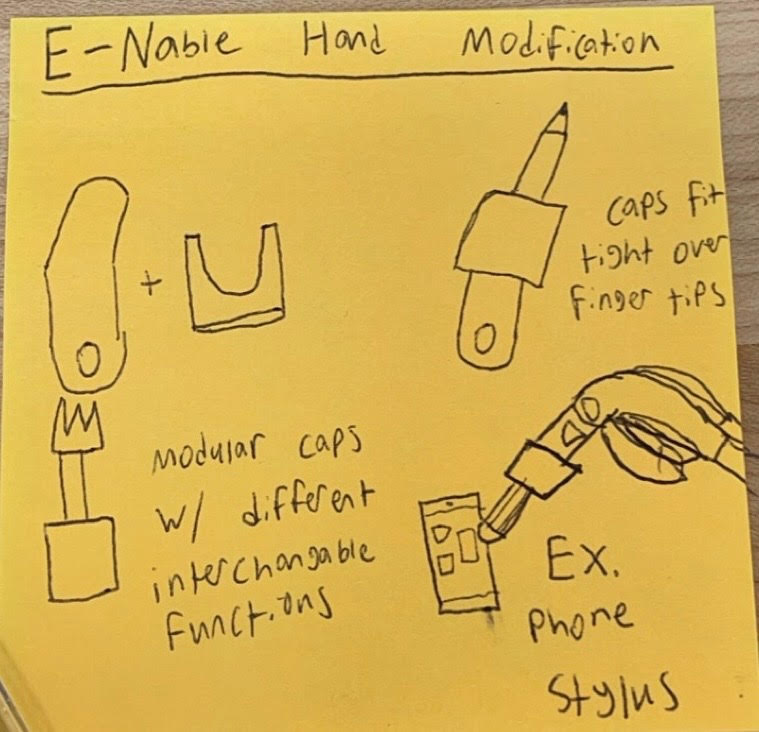 E-Nable Hand Modification
caps fit
tight over
finger tips
Modular caps
w/ different
interchangable
functions
Ex.
Phone
Stylus